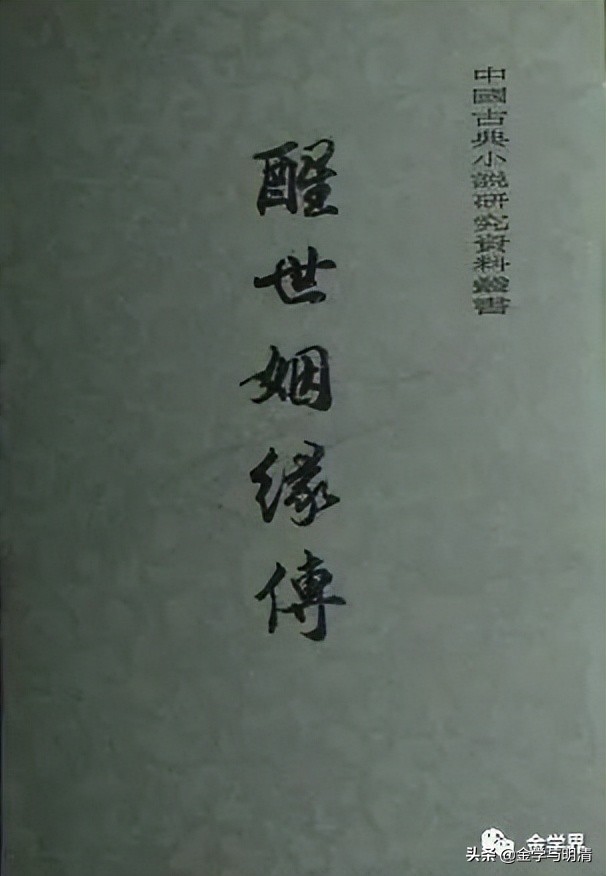 中國古典小說研究資料叢書
醒世姻緣傳
金学界
头条 @金学与明清